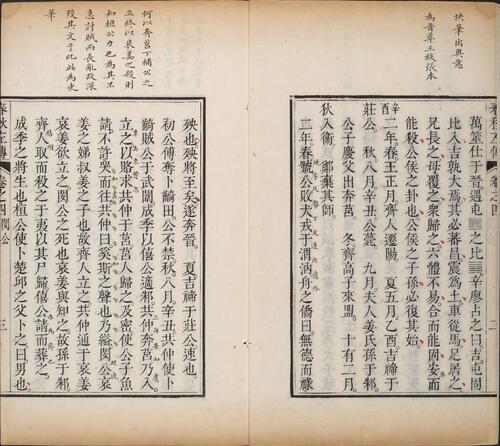 快筆出奧意
為晉萃三族張本
萬筮仕于晉遇屯䷂之比䷇辛廖占之曰吉屯固
比入吉孰大焉其必蕃昌震為土車從馬足居之
兄長之母覆之眾歸之六體不易合而能固安而
能殺公侯之卦也公侯之子孫必復其始
辛酉
二年春王正月齊人遷陽 夏五月乙酉吉禘于
莊公 秋八月辛丑公薨 九月夫人姜氏孫于邾
公子慶父出奔莒 冬齊高子來盟 十有二月
狄入衛 鄭棄其師
二年春虢公敗犬戎于渭汭舟之僑曰無德而祿
何以奔莒下補公之
立終以哀姜之殺則
知桓公力也為其不
急討賊而長亂故深
沒其文于此此為史
筆
殃也殃將至矣遂奔晉 夏吉禘于莊公速也
初公傅奪卜齮田公不禁秋八月辛丑共仲使卜
齮賊公于武闈成季以僖公適邾共仲奔莒乃入
立之以賂求共仲于莒莒人歸之及密使公子魚
請不許哭而往共仲曰奚斯之聲也乃縊閔公哀
姜之娣叔姜之子也故齊人立之共仲通于哀姜
哀姜欲立之閔公之死也哀姜與知之故孫于邾
齊人取而殺之于夷以其尸歸僖公請而葬之
成季之將生也桓公使卜楚丘之父卜之曰男也
春秋左傳 卷之四 閔公 三